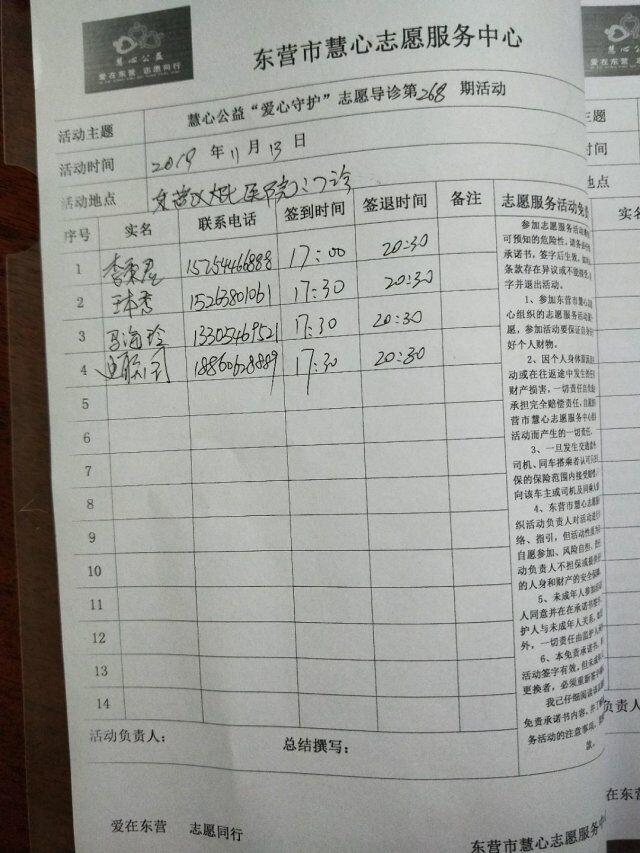 慧心公益
爱在东营 志愿同行
东营市慧心志愿服务中心
活动主题 慧心公益“爱心守护”志愿导诊第268期活动
活动时间 2019年11月13日
活动地点 东营 医院门诊
序号 实名 联系电话 签到时间 签退时间 备注 志愿服务活动免责
1 15254466888 17:00 20:30
2 15263801061 17:30 20:30
3 马海玲 13305469521 17:30 20:30
4 18860628889 17:30 20:30
5
6
7
8
9
10
11
12
13
14
参加志愿服务活动
可预知的危险性,请务必
承诺书,签字后生效,如
条款存在异议或不能接受,
字并退出活动。
1、参加东营市慧心志
心组织的志愿服务活动
愿,参加活动要保证自身
好个人财物。
2、因个人身体原因
动或在往返途中发生的
财产损害,一切责任由
承担完全赔偿责任,自愿
营市慧心志愿服务中心
活动而产生的一切责任.
3、一旦发生交通意外
司机、同车搭乘者认可
保的保险范围内接受赔
向该车主或司机及同乘人
4、东营市慧心志愿服
织活动负责人对活动进行
络、指引,但活动性质为
自愿参加、风险自担,
动负责人不担保或提供
的人身和财产的安全保
5、未成年人参加
人同意并在在承诺书
护人与未成年人关系,
外,一切责任由监护人
6、本免责承诺书,
活动签字有效,但未成年
更换者,必须重新签字
我已仔细阅读
免责承诺书内容,并了解
务活动的注意事项,
款。
活动负责人: 总结撰写:
爱在东营 志愿同行
东营市慧心志愿服务中
主题
时间
地点
实名
在东营